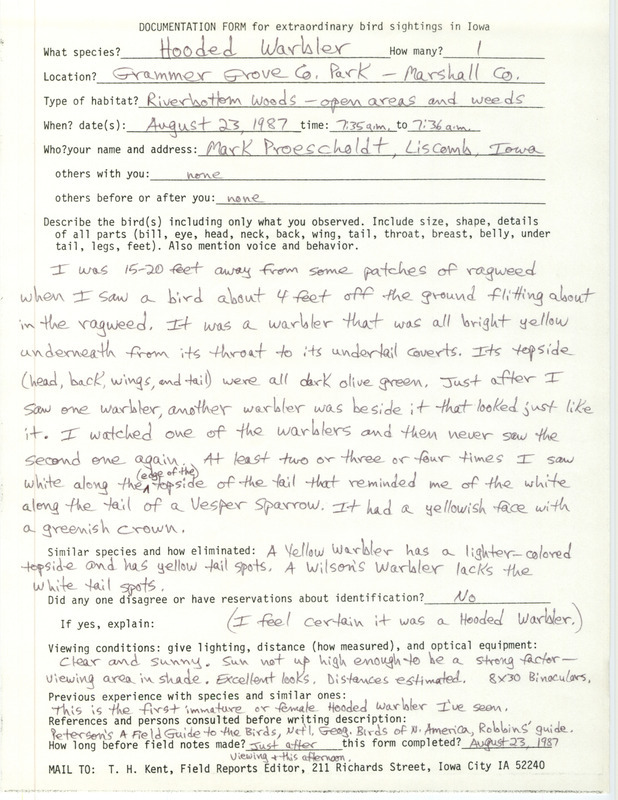 DOCUMENTATION FORM for extraordinary bird sightings in Iowa
What species? Hooded Warbler How many? 1
Location? Grammer Grove Co. Park - Marshall Co.
Type of habitat? Riverbottom woods - open areas and weeds
When? date(s): August 23, 1987 time: 7:35 a.m. to 7:36 a.m.
Who? your name and address: Mark Proescholdt, Liscomb, Iowa
others with you: none
others before or after you: none
Describe the bird(s) including only what you observed. Include size, shape, details
of all parts (bill, eye, head, neck, back, wing, tail, throat, breast, belly, under
tail, legs, feet). Also mention voice and behavior.
I was 15-20 feet away from some patches of ragweed
when I saw a bird about 4 feet off the ground flitting about
in the ragweed. It was a warbler that was all bright yellow
underneath from its throat to its undertail coverts. Its topside
(head, back, wings, and tail) were all dark olive green. Just after I
saw one warbler, another warbler was beside it that looked just like
it. I watched one of the warblers and then never saw the
second one again. At least two or three or four times I saw
white along the (edge of the) topside of the tail that reminded me of the white
along the tail of a Vesper Sparrow. It had a yellowish face with
a greenish crown.
Similar species and how eliminated: A Yellow Warbler has a lighter-colored
topside and has yellow tail spots. A Wilson's Warbler lacks the
white tail spots.
Did any one disagree or have reservations about identification? No
If yes, explain: (I feel certain it was a Hooded Warbler.)
Viewing conditions: give lighting, distance (how measured), and optical equipment:
Clear and sunny. Sun not up high enough to be a strong factor-
viewing area in shade. Excellent looks. Distances estimated. 8x30 Binoculars.
Previous experience with species and similar ones:
This is the first immature or female Hooded Warbler I've seen.
References and persons consulted before writing description:
Peterson's A Field Guide to the Birds, Nat'l. Geog. Birds of N. America, Robbins' guide.
How long before field notes made? Just after this form completed? August 23, 1987
viewing + this afternoon.
MAIL TO: T. H. Kent, Field Reports Editor, 211 Richards Street, Iowa City IA 52240